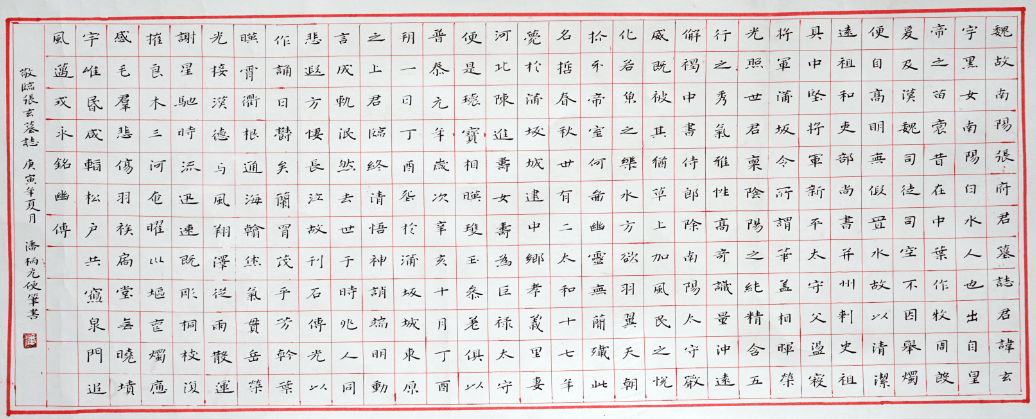 魏故南陽張府君墓誌君諱玄
字黑女南陽白水人也出自皇
帝之苗裔昔在中葉作牧周殷
爰及漢魏司徒司空不因舉燭
便自高明無假置水故以清潔
遠祖和吏部尚書并州刺史祖
具中堅將軍新平太守父盪寇
將軍蒲坂令所謂華蓋相暉榮
光照世君稟陰陽之純精含五
行之秀氣雅性高奇識量沖遠
解褐中書侍郎除南陽太守嚴
威既被其猶草上加風民之悅
化若魚之樂水方欲羽翼天朝
抓牙帝室何圖幽靈無簡殲此
名哲春秋卅有二太和十七年
薨於蒲坂城建中鄉孝義里妻
河北陳進壽女壽為巨祿太守
便是瑰寶相暎瓊玉參差俱以
普泰元年歲次辛亥十月丁酉
朔一日丁酉塟於蒲坂城東原
之上君臨終清悟神誚端明動
言成軌泯然去世于時兆人同
悲遐方悽長泣故刊石傳光以
作誦曰欝矣蘭胄茂乎芳幹葉
暎霄衢根通海翰綿氣貫岳榮
光接漢德与風翔澤從雨散運
謝星馳時流迅速既彫桐枝復
摧良木三河奄曜塸燭應
感毛羣悲傷羽族扃堂無曉墳
宇唯昬咸韜松戶共寢泉門追
風邁式永銘幽傳
敬臨張玄墓誌 庚寅年夏月 潘炳元硬筆書